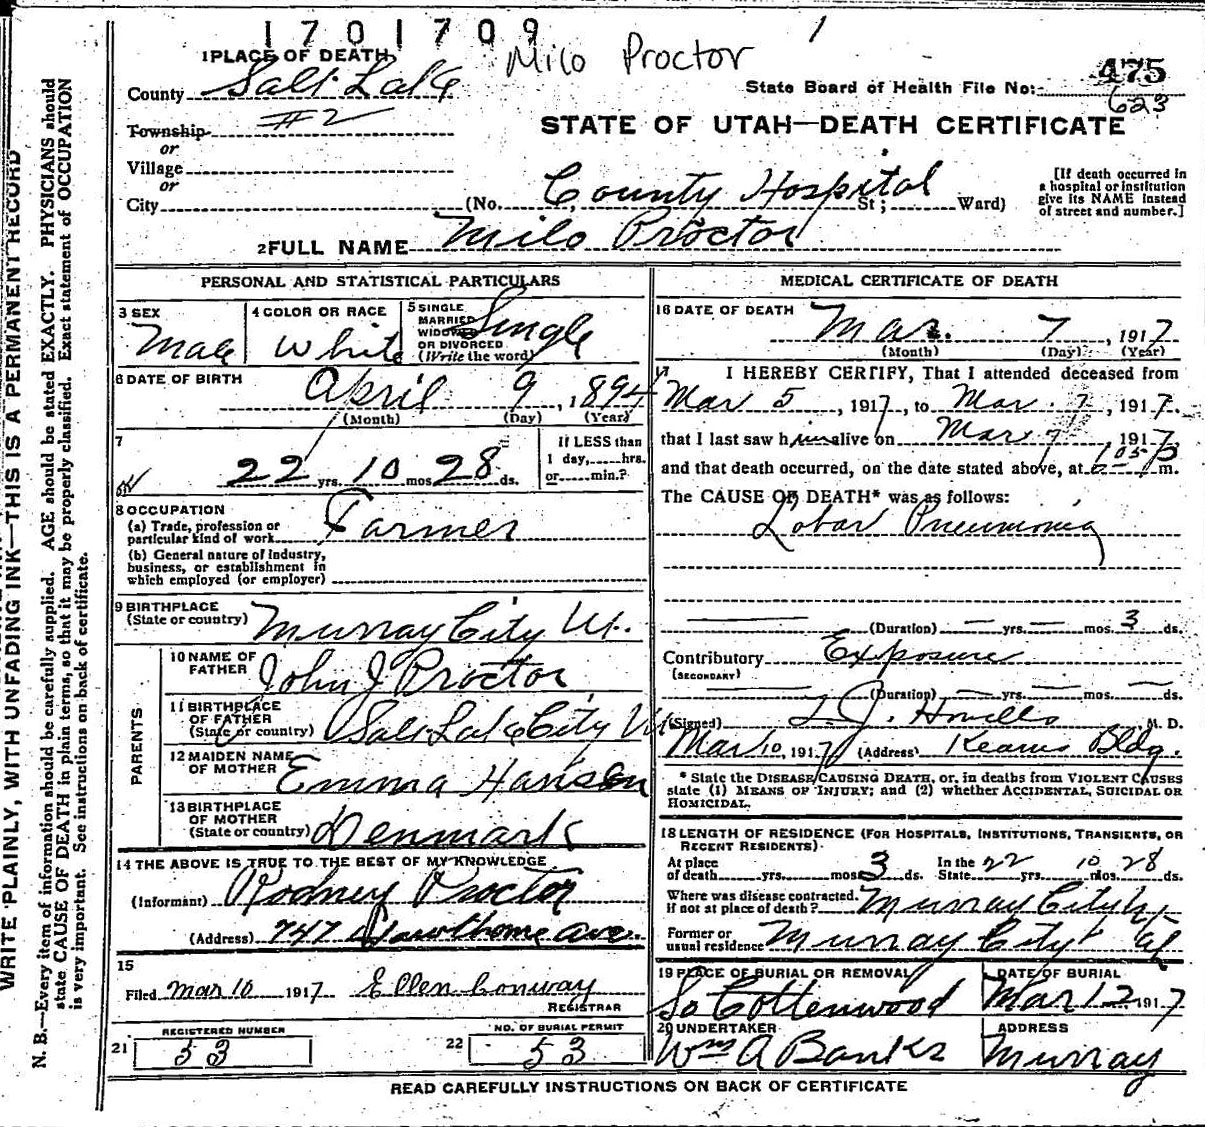 1701709
Milo Proctor
1 PLACE OF DEATH
County Salt Lake
State Board of Health File No. 475
623
Township #2
or
Village
or
City
STATE OF UTAH—DEATH CERTIFICATE
(No. County Hospital St; Ward)
[If death occurred in
a hospital or institution
give its NAME instead
of street and number.]
2 FULL NAME Milo Proctor
PERSONAL AND STATISTICAL PARTICULARS
3 SEX
Male
4 COLOR OR RACE
White
5 SINGLE
MARRIED
WIDOWED
OR DIVORCED
(Write the word)
Single
6 DATE OF BIRTH
April 9, 1894
(Month) (Day) (Year)
7
22 yrs. 10 mos. 28 ds.
If LESS than
1 day, hrs.
or min.?
8 OCCUPATION
(a) Trade, profession or
particular kind of work Farmer
(b) General nature of industry,
business, or establishment in
which employed (or employer)
9 BIRTHPLACE
(State or country) Murray City Ut.
PARENTS
10 NAME OF
FATHER John J Proctor
11 BIRTHPLACE
OF FATHER
(State or country) Salt Lake City Ut
12 MAIDEN NAME
OF MOTHER Emma Hanson
13 BIRTHPLACE
OF MOTHER
(State or country) Denmark
14 THE ABOVE IS TRUE TO THE BEST OF MY KNOWLEDGE
(Informant) Rodney Proctor
(Address) 747 Hawthorne ave.
15
Filed Mar 10 1917 Ellen Conway
REGISTRAR
REGISTERED NUMBER
21 53
NO. OF BURIAL PERMIT
22 53
MEDICAL CERTIFICATE OF DEATH
16 DATE OF DEATH
Mar. 7, 1917
(Month) (Day) (Year)
17 I HEREBY CERTIFY, That I attended deceased from
Mar 5, 1917, to Mar. 7, 1917.
that I last saw him alive on Mar 7, 1917
and that death occurred, on the date stated above, at 105 P m.
The CAUSE OF DEATH* was as follows:
Lobar Pneumonia
(Duration) yrs. mos. 3 ds.
Contributory Exposure
(SECONDARY)
(Duration) yrs. mos. ds.
(Signed) L. J. Howells M. D.
Mar 10, 1917 (Address) Kearns Bldg.
* State the DISEASE CAUSING DEATH, or, in deaths from VIOLENT CAUSES
state (1) MEANS OF INJURY; and (2) whether ACCIDENTAL, SUICIDAL OR
HOMICIDAL.
18 LENGTH OF RESIDENCE (FOR HOSPITALS, INSTITUTIONS, TRANSIENTS, OR
RECENT RESIDENTS)
At place
of death yrs. mos. 3 ds.
In the
State 22 yrs. 10 mos. 28 ds.
Where was disease contracted,
if not at place of death? Murray City Ut
Former or
usual residence Murray City Ut
19 PLACE OF BURIAL OR REMOVAL
So Cottonwood
DATE OF BURIAL
Mar 12 1917
20 UNDERTAKER
Wm A Banks
ADDRESS
Murray
READ CAREFULLY INSTRUCTIONS ON BACK OF CERTIFICATE
WRITE PLAINLY, WITH UNFADING INK—THIS IS A PERMANENT RECORD
N. B.—Every item of information should be carefully supplied. AGE should be stated EXACTLY. PHYSICIANS should
state CAUSE OF DEATH in plain terms, so that it may be properly classified. Exact statement of OCCUPATION
is very important. See instructions on back of certificate.